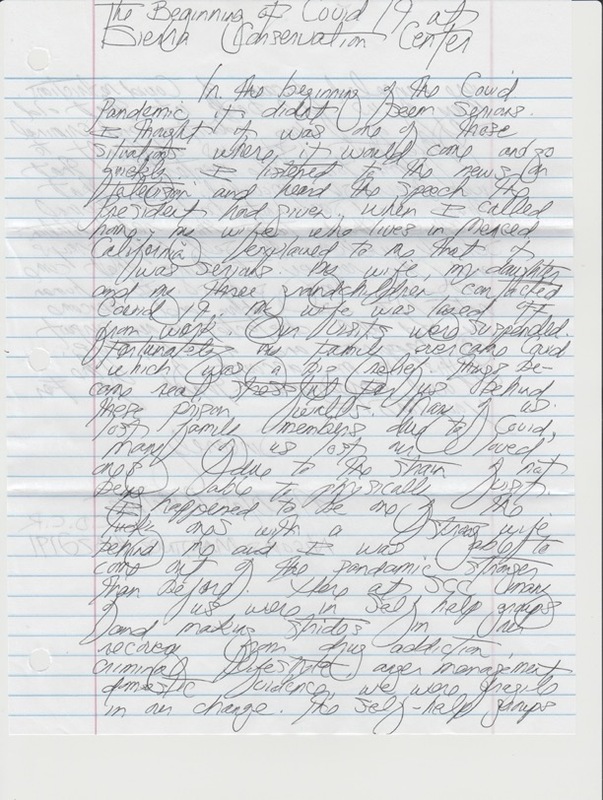 The Beginning of Covid 19 at
Sierra Conservation Center
In the beginning of the Covid
Pandemic it didnt seem serious.
I thought it was one of those
situations where it would come and go
quickly. I listened to the news on
television and heard the speech the
President had given, when I called
home, my wife who lives in Merced
California explained to me that it
was serious. My wife, my daughter
and my three grandchildren contacted
Covid 19. My wife was layed off
from work. Our visits were suspended.
Fortunately my family overcame Covid
which was a big relief. Things be-
came real stressful for us behind
these prison walls. Many of us
lost family members due to Covid,
many of us lost our loved
ones due to the strain of not
being able to physically visit.
I happened to be one of the
lucky ones with a strong wife
behind me and I was able to
come out of the pandemic stronger
than before. Here at SCC many
of us were in self help groups
and making strides in our
recovery from drug addiction,
criminal lifestyle, anger management
domestic violence, we were fragile
in our change. The self-help groups